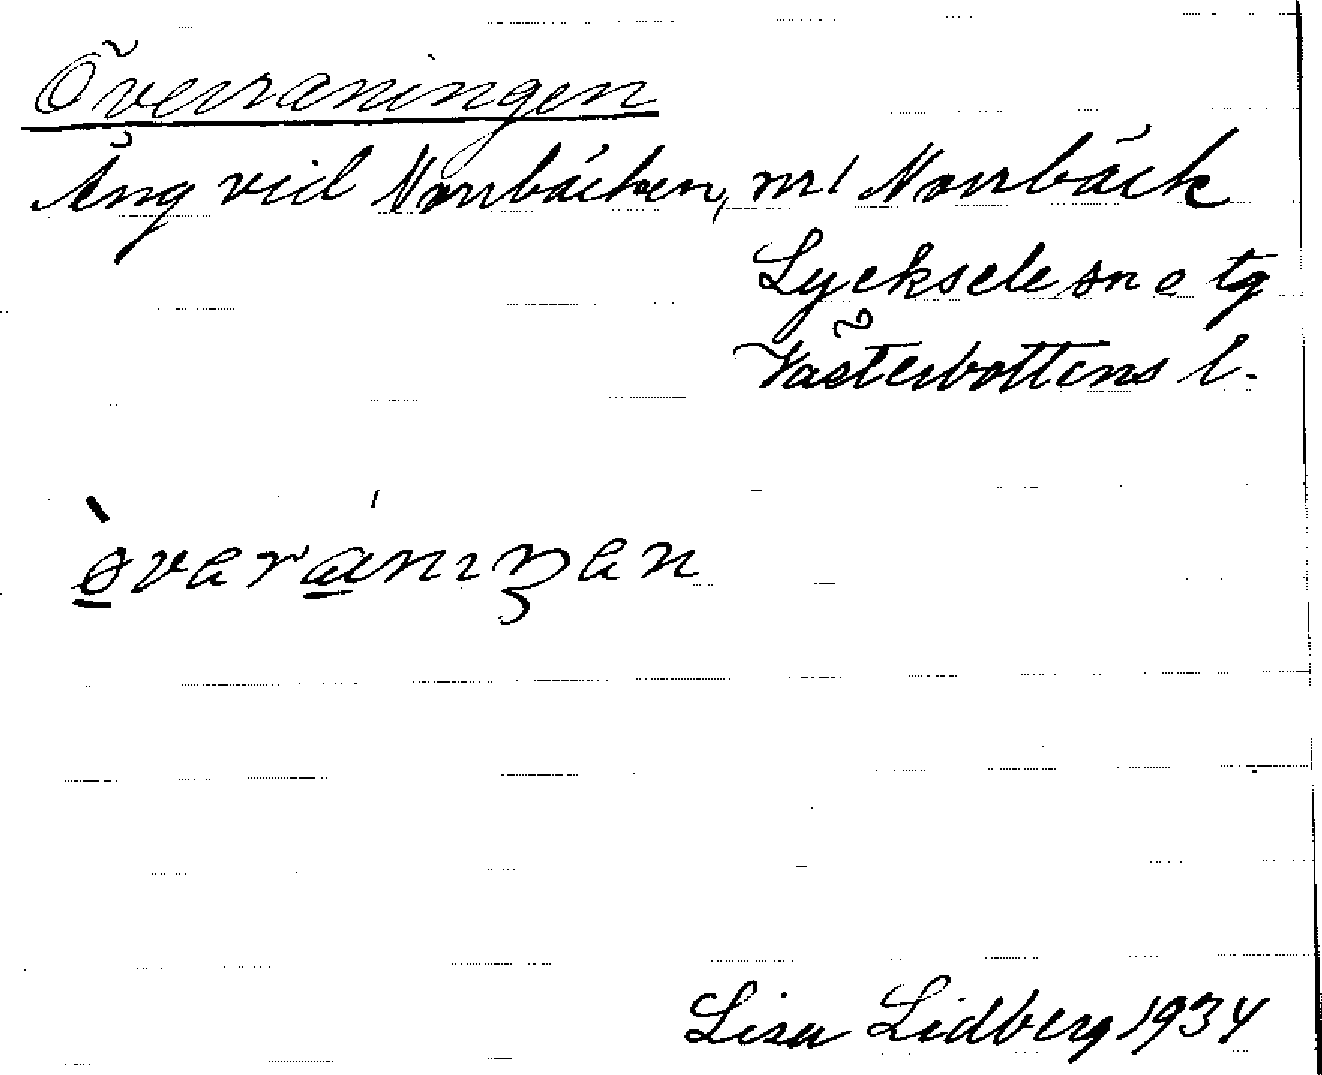 Överraningen
Äng vid Norrbäcken, nr 1 Norrbäck
Lycksele sn o tg
Västerbottens l.
ø̀varánıŋan
Lisa Lidberg 1934